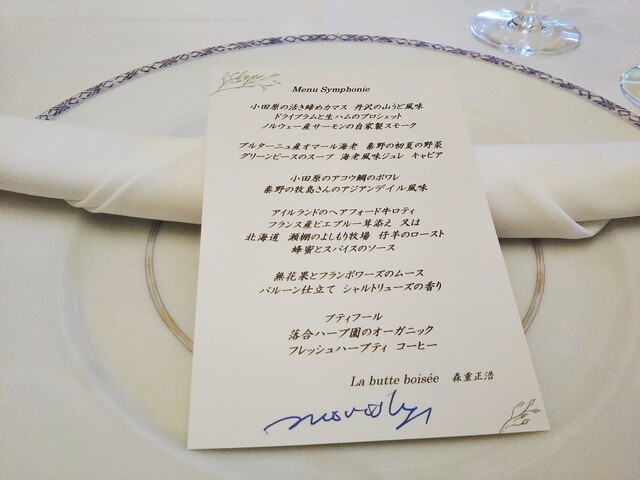 Menu Symphonie
小田原の活き締めカマス 丹沢の山うど風味
ドライプラムと生ハムのブロシェット
ノルウェー産サーモンの自家製スモーク
ブルターニュ産オマール海老 秦野の初夏の野菜
グリーンピースのスープ 海老風味ジュレ キャビア
小田原のアコウ鯛のポワレ
秦野の牧島さんのアジアンデイル風味
アイルランドのヘアフォード牛ロティ
フランス産ピエブルー茸添え 又は
北海道 瀬棚のよしもり牧場 仔羊のロースト
蜂蜜とスパイスのソース
無花果とフランボワーズのムース
バルーン仕立て シャルトリューズの香り
プティフール
落合ハーブ園のオーガニック
フレッシュハーブティ コーヒー
La butte boisée 森重正浩